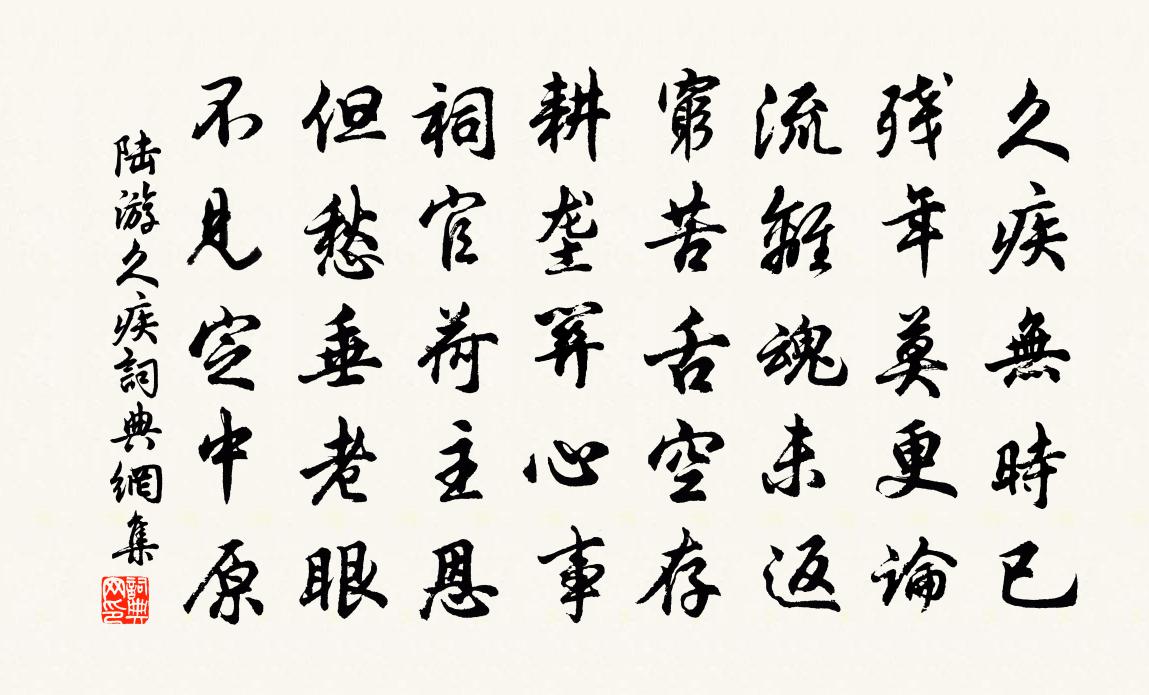 久疾無時已
残年莫更論
流離魂未返
窮苦舌空存
耕垄関心事
祠官荷主恩
但愁垂老眼
不見定中原
陆游久疾詞典網集
詞典网印